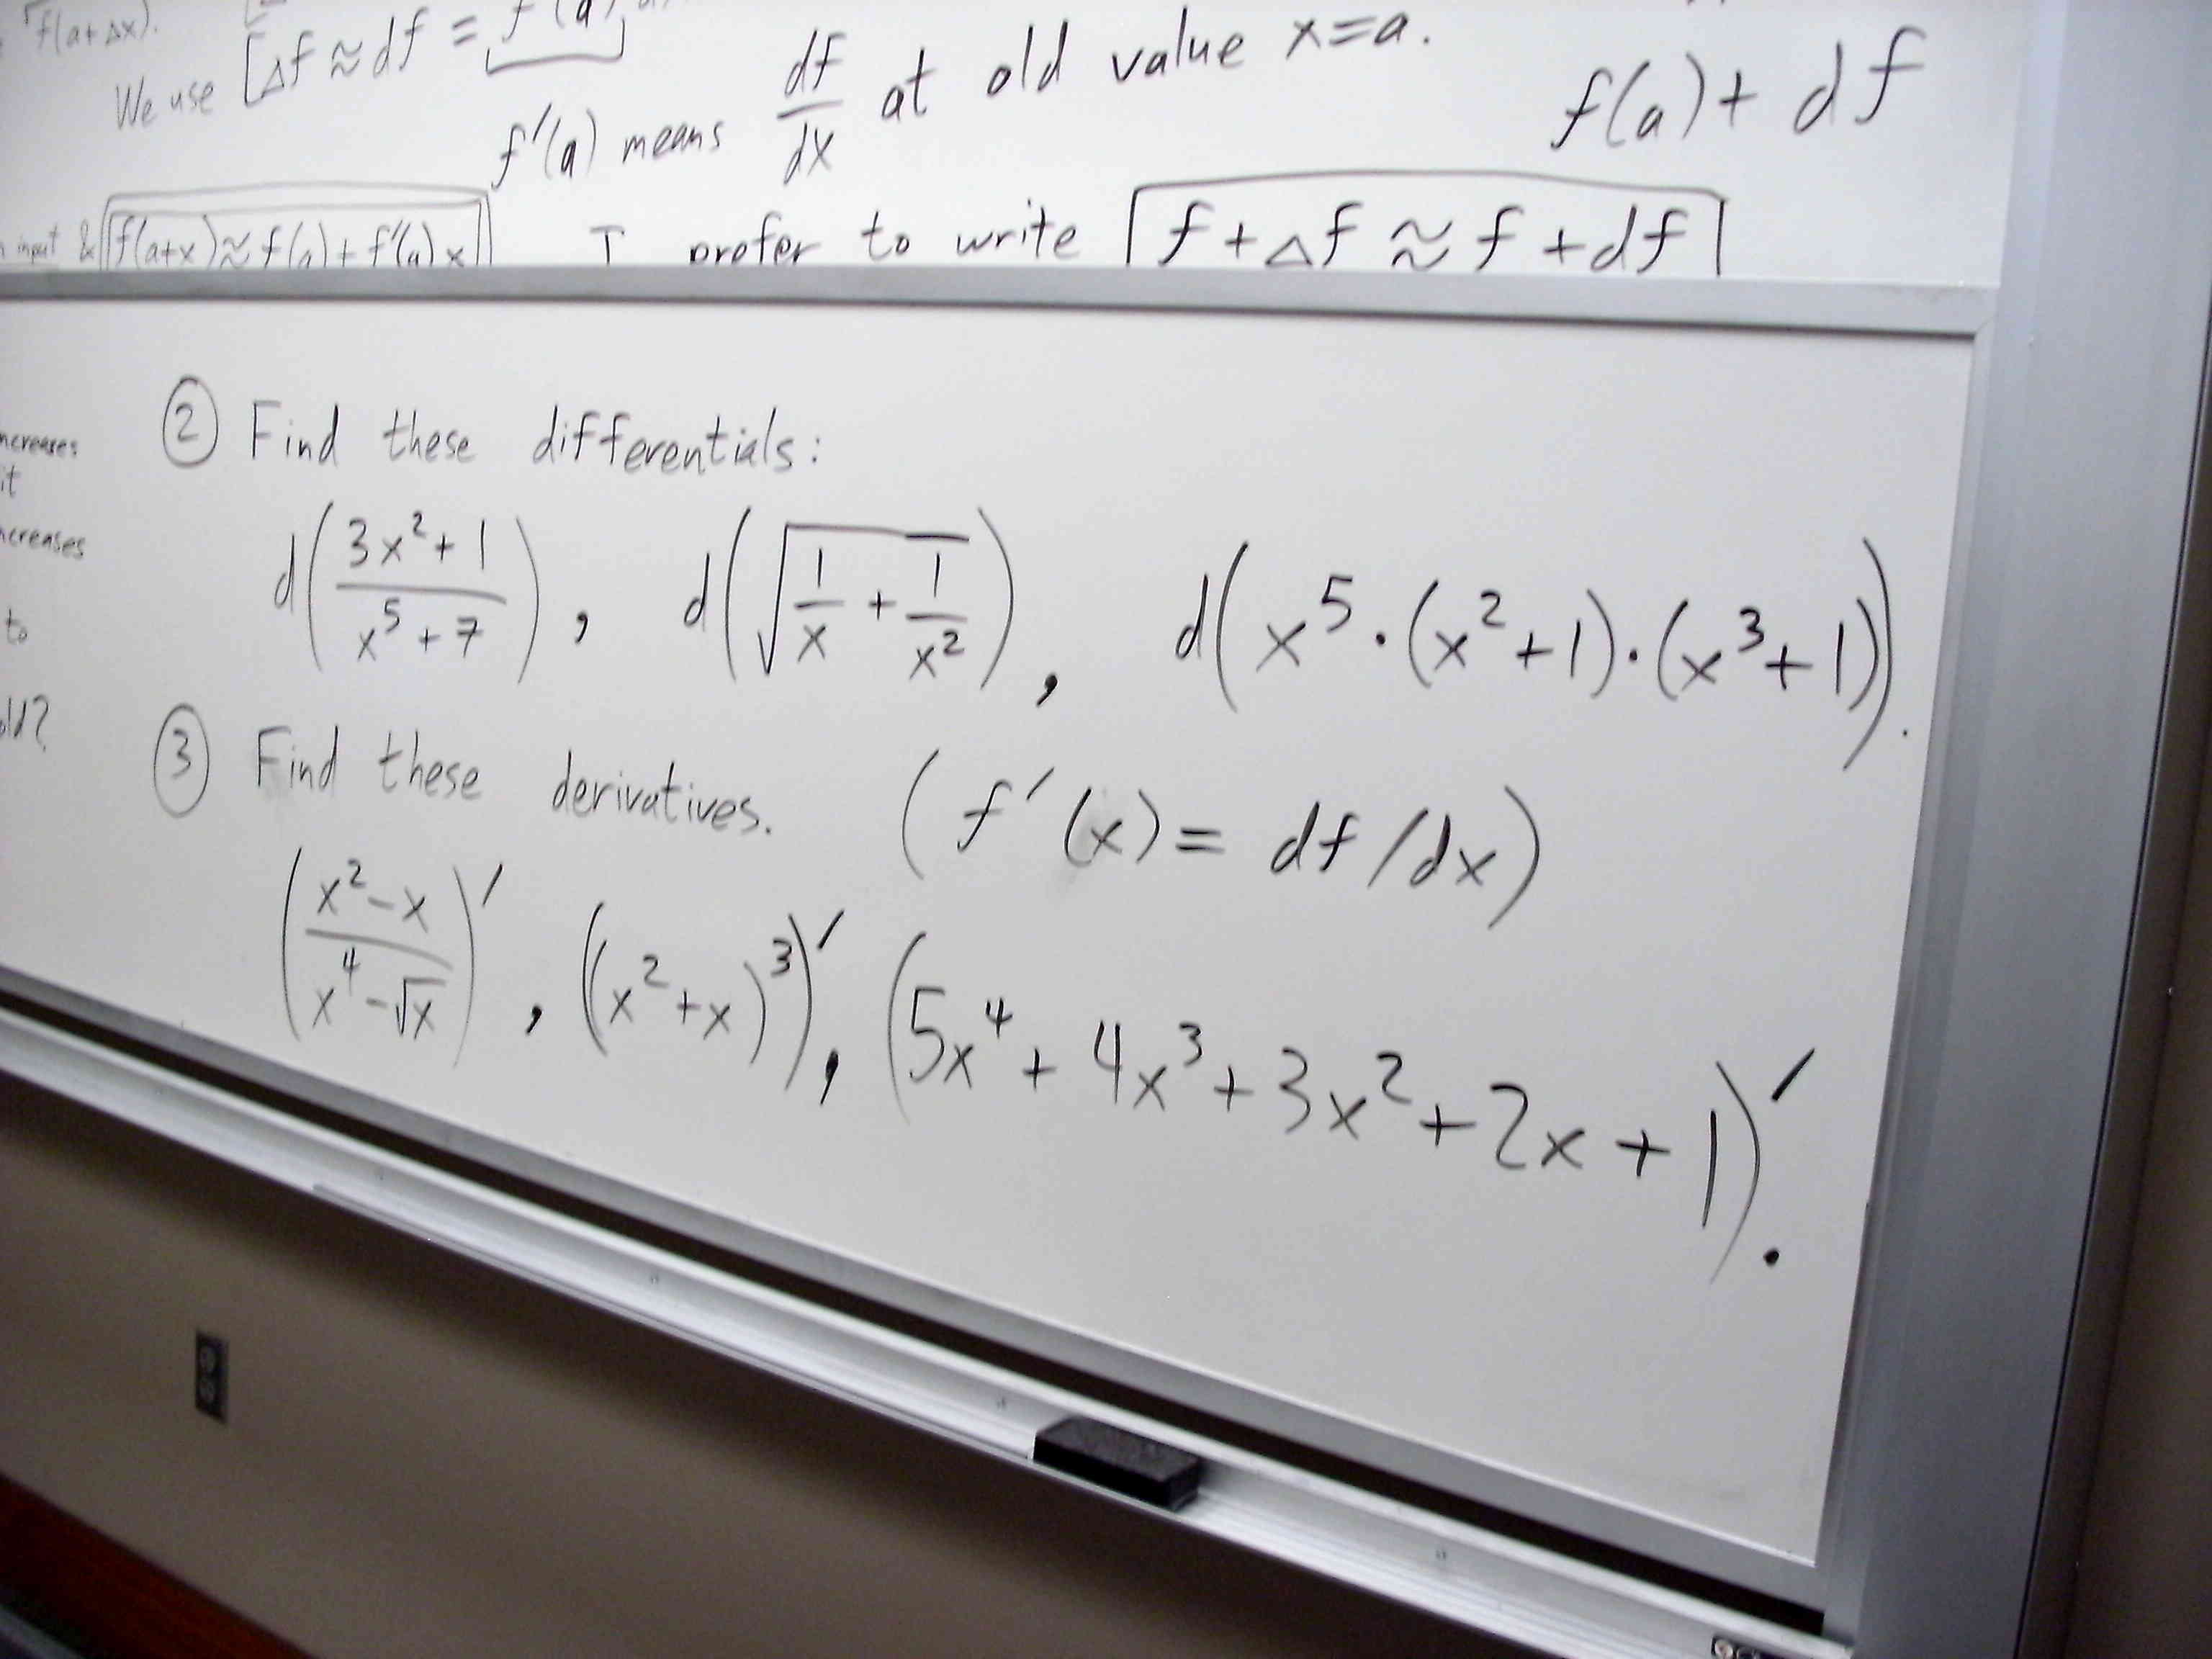 f(a+Δx).
We use [Δf ≈ df = f'(a)
f'(a) means df/dx at old value x=a.
f(a) + df
input & f(a+x) ≈ f(a) + f'(a) x
I prefer to write f + Δf ≈ f + df
ncreases
it
ncreases
to
old?
② Find these differentials:
d((3x²+1)/(x⁵+7)), d(√(1/x + 1/x²)), d(x⁵·(x²+1)·(x³+1)).
③ Find these derivatives. (f'(x) = df/dx)
((x²-x)/(x⁴-√x))', ((x²+x)³)', (5x⁴+4x³+3x²+2x+1)'.